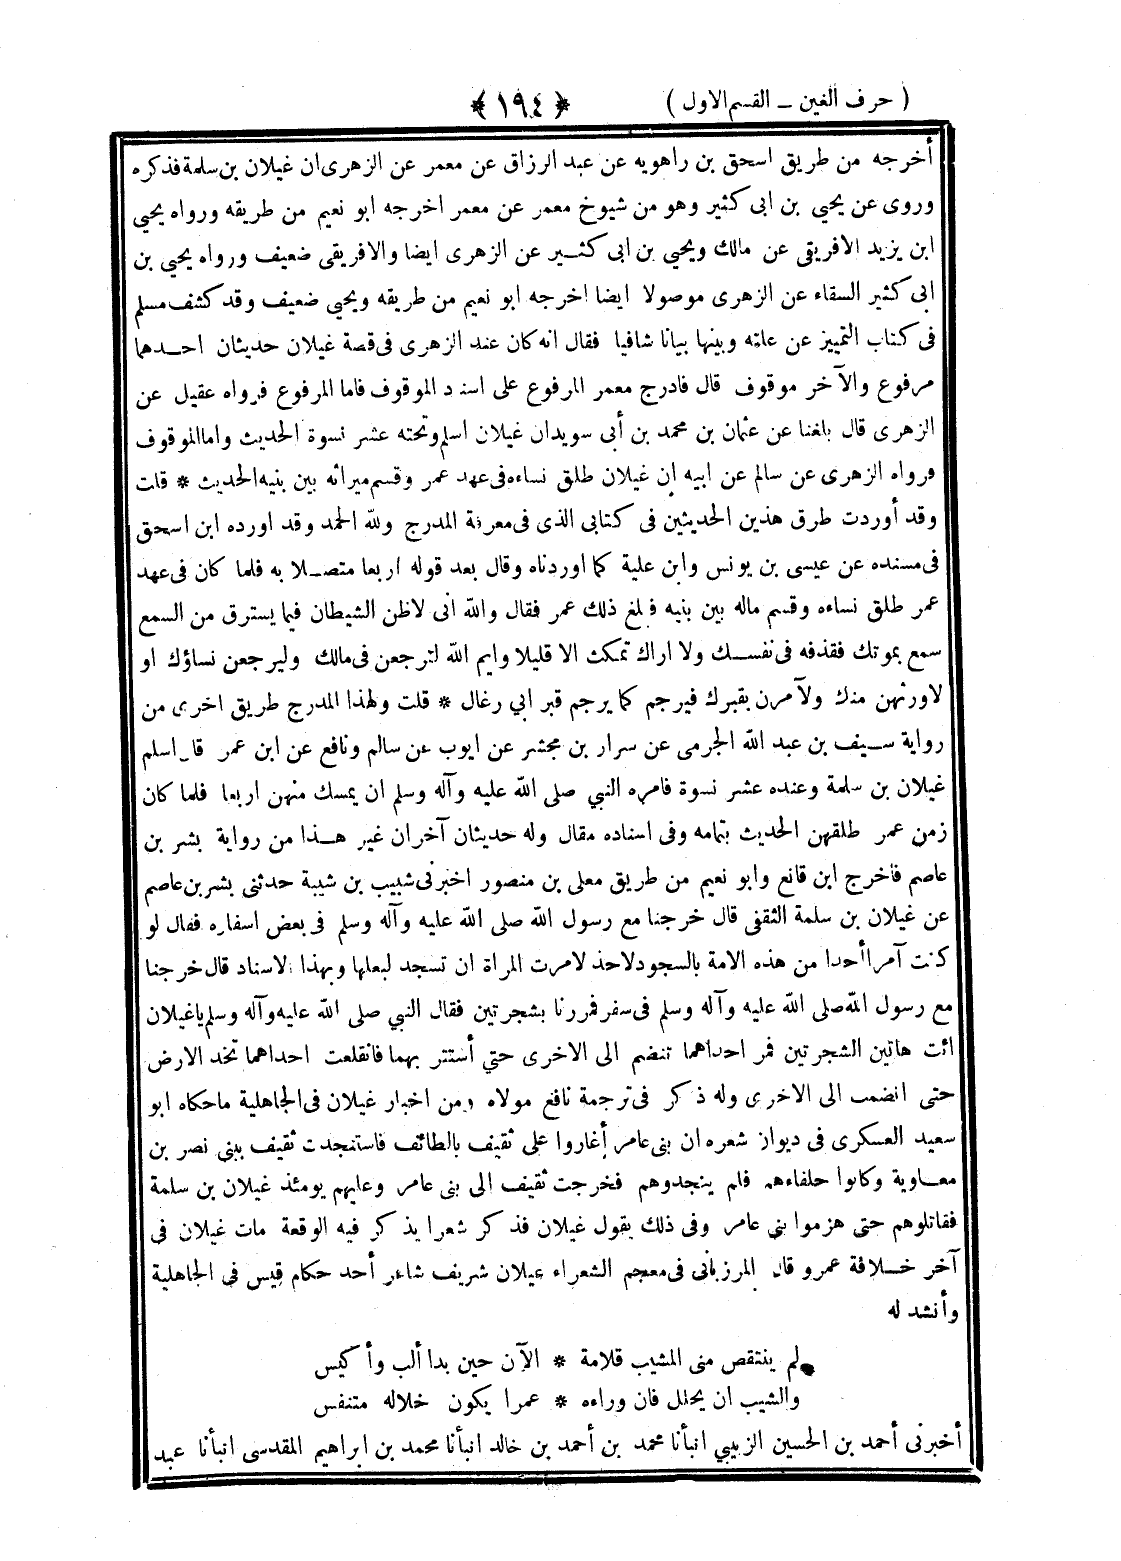 ( حرف الغين – القسم الاول ) ﴿ ١٩٤ ﴾
أخرجه من طريق اسحق بن راهويه عن عبد الرزاق عن معمر عن الزهرى ان غيلان بن سلمة فذكره
وروى عن يحيى بن ابى كثير وهو من شيوخ معمر عن معمر اخرجه ابو نعيم من طريقه ورواه يحيي
ابن يزيد الافريقى عن مالك ويحيي بن ابى كثير عن الزهرى ايضا والافريقى ضعيف ورواه يحيى بن
ابى كثير السقاء عن الزهرى موصولا ايضا اخرجه ابو نعيم من طريقه ويحيي ضعيف وقد كشف مسلم
فى كتاب التمييز عن علته وبينها بيانا شافيا فقال انه كان عند الزهرى فى قصة غيلان حديثان احدهما
مرفوع والآخر موقوف قال فادرج معمر المرفوع على اسناد الموقوف فاما المرفوع فرواه عقيل عن
الزهرى قال بلغنا عن عثمان بن محمد بن أبى سويدان غيلان اسلم وتحته عشر نسوة الحديث واما الموقوف
فرواه الزهرى عن سالم عن ابيه ان غيلان طلق نساءه فى عهد عمر وقسم ميراثه بين بنيه الحديث * قلت
وقد أوردت طرق هذين الحديثين فى كتابى الذى فى معرفة المدرج ولله الحمد وقد اورده ابن اسحق
فى مسنده عن عيسى بن يونس وابن علية كما اوردناه وقال بعد قوله اربعا متصلا به فلما كان فى عهد
عمر طلق نساءه وقسم ماله بين بنيه فبلغ ذلك عمر فقال والله انى لاظن الشيطان فيما يسترق من السمع
سمع بموتك فقذفه فى نفسك ولا اراك تمكث الا قليلا وايم الله لترجعن فى مالك وليرجعن نساؤك او
لاورثهن منك ولآمرن بقبرك فيرجم كما يرجم قبر ابي رغال * قلت ولهذا المدرج طريق اخرى من
رواية سيف بن عبد الله الجرمى عن سرار بن مجشر عن ايوب عن سالم ونافع عن ابن عمر قال اسلم
غيلان بن سلمة وعنده عشر نسوة فامره النبي صلى الله عليه وآله وسلم ان يمسك منهن اربعا فلما كان
زمن عمر طلقهن الحديث بتمامه وفى اسناده مقال وله حديثان آخران غير هذا من رواية بشر بن
عاصم فأخرج ابن قانع وابو نعيم من طريق معلى بن منصور اخبرنى شبيب بن شيبة حدثنى بشر بن عاصم
عن غيلان بن سلمة الثقفى قال خرجنا مع رسول الله صلى الله عليه وآله وسلم فى بعض اسفاره فقال لو
كنت آمرا أحدا من هذه الامة بالسجود لاحد لامرت المراة ان تسجد لبعلها وبهذا الاسناد قال خرجنا
مع رسول الله صلى الله عليه وآله وسلم فى سفر فمررنا بشجرتين فقال النبي صلى الله عليه وآله وسلم ياغيلان
ائت هاتين الشجرتين فمر احداهما تنضم الى الاخرى حتي أستتر بهما فانقلعت احداهما تخد الارض
حتى انضمت الى الاخرى وله ذكر فى ترجمة نافع مولاه ومن اخبار غيلان فى الجاهلية ماحكاه ابو
سعيد العسكرى فى ديوان شعره ان بنى عامر أغاروا على ثقيف بالطائف فاستنجدت ثقيف ببنى نصر بن
معاوية وكانوا حلفاءهم فلم ينجدوهم فخرجت ثقيف الى بنى عامر وعليهم يومئذ غيلان بن سلمة
فقاتلوهم حتى هزموا بني عامر وفى ذلك يقول غيلان فذكر شعرا يذكر فيه الوقعة مات غيلان فى
آخر خلافة عمرو قال المرزبانى فى معجم الشعراء غيلان شريف شاعر أحد حكام قيس في الجاهلية
وأنشد له
لم ينتقص منى المشيب قلامة * الآن حين بدا ألب وأكيس
والشيب ان يحلل فان وراءه * عمرا يكون خلاله متنفس
أخبرنى أحمد بن الحسين الزينبي انبأنا محمد بن أحمد بن خالد انبأنا محمد بن ابراهيم المقدسى انبأنا عبد